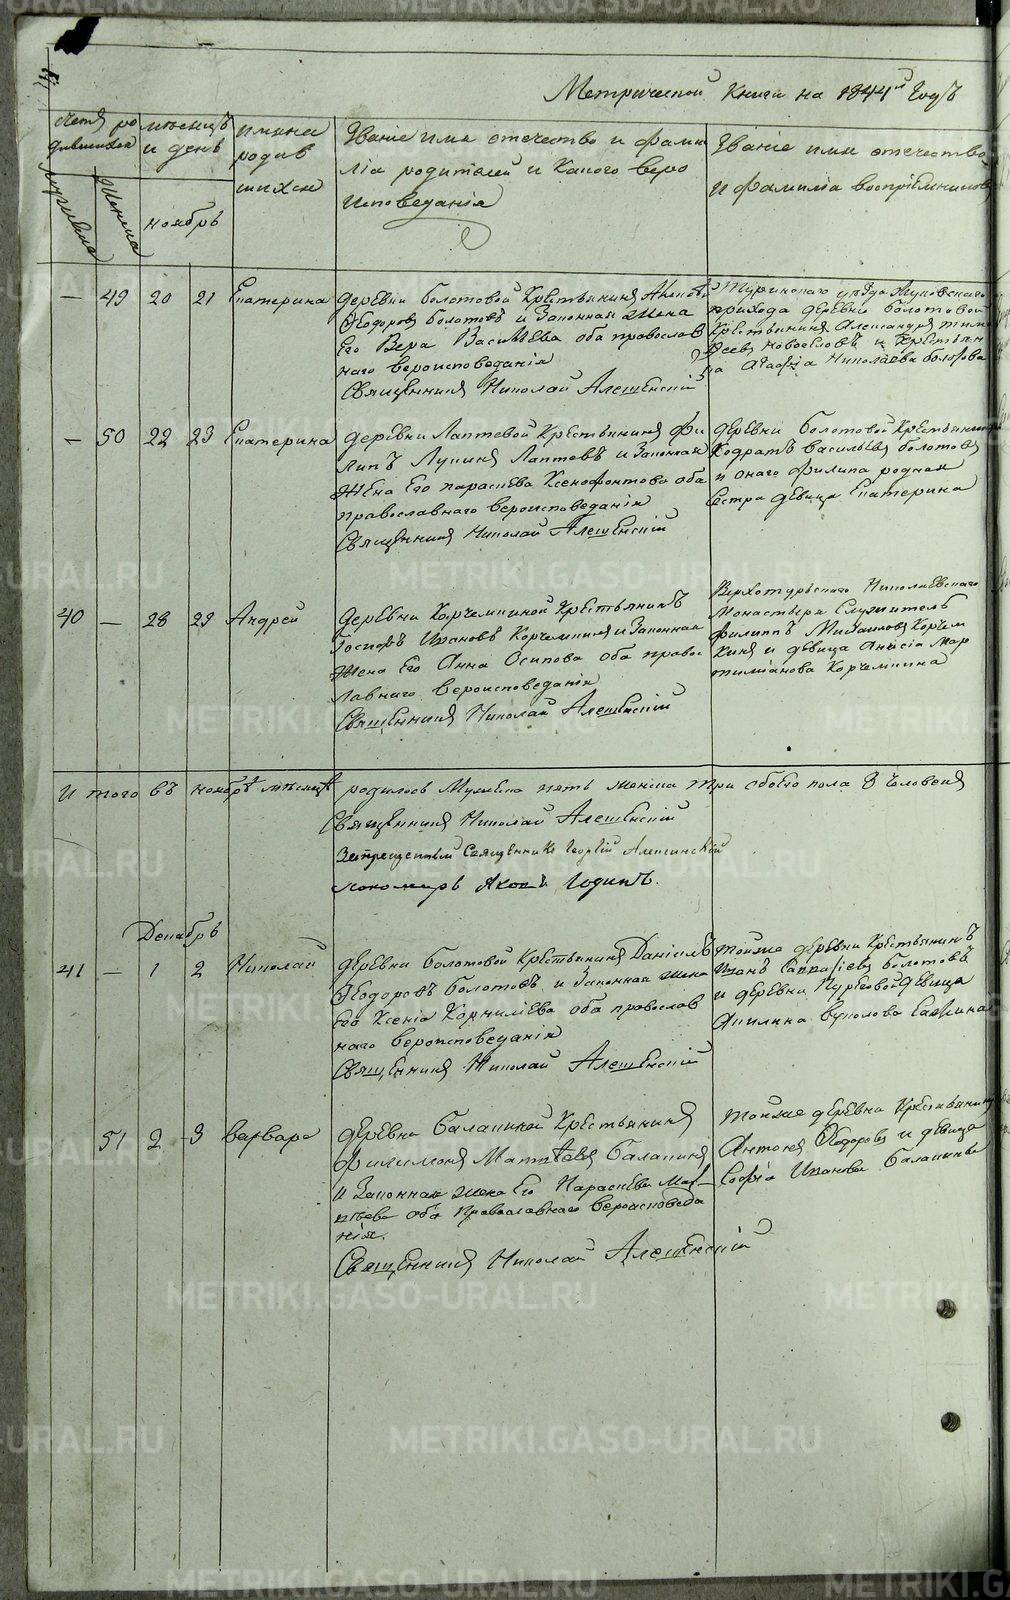 Метрической книги на 1844й Годъ
Счетъ ро
дившихся
мужеска
женска
месяцъ
и день
ноябрь
имяна
родив
шихся
Званіе имя отечество и фами
лія родителей и Какого веро
исповеданія
Званіе имя отечество
и фамилія воспріемниковъ
— 49 20 21 Екатерина
деревни болотовой Крестьянинъ
Ѳеодоровъ болотовъ и Законная Жена
Его Вера Васильева оба православ
наго вероисповеданія
Священникъ Николай Алешенскій
Туринского уезда
прихода деревни болотовой
Крестьянинъ Александръ тимо
Ѳеевъ Новоселовъ и Крестьян
ка Агафія Николаева болотова
— 50 22 23 Екатерина
деревни Лаптевой Крестьянинъ Фи
липъ Лукинъ Лаптевъ и Законная
Жена Его параскева Ксенофонтова оба
православнаго вероисповеданія
Священникъ Николай Алешенскій
деревни болотовой Крестьянинъ
Кодратъ васильевъ болотовъ
и онаго филипа родная
Сестра девица Екатерина
40 — 28 29 Андрей
деревни Корчемкиной Крестьянинъ
Иосифъ Ивановъ Корчемкинъ и Законная
Жена Его Анна Осипова оба право
лавнаго вероисповеданія
Священникъ Николай Алешенскій
Верхотурьского Николаевского
Монастыря Служитель
филиппъ Михаиловъ Корчем
кинъ и девица Анисія Мар
тиміанова Корчемкина
Итого въ ноябрѣ месяцѣ родилось Мужеска пять женска три обоего пола 8 Человекъ
Священникъ Николай Алешенскій
Запрещенный Священникъ Георгій Алешинскій
пономарь Яковъ Годинъ.
Декабрь
41 — 1 2 Николай
деревни Болотовой Крестьянинъ Даніилъ
Ѳеодоровъ Болотовъ и Законная жена
Его Ксенія Корниліева оба православ
наго вероисповеданія
Священникъ Николай Алешенскій
тойже деревни Крестьянинъ
Иванъ болотовъ
и деревни девица
Акилина
51 2 3 варвара
деревни Балакиной Крестьянинъ
Филимонъ Матѳѣевъ Балакинъ
и Законная жена Его Параскева Мат
вѣева оба Православнаго вероисповеда
нія.
Священникъ Николай Алешенскій
тойже деревни Крестьянинъ
Антонъ Ѳеодоровъ и девица
Софія Иванова Балакины
METRIKI.GASO-URAL.RU